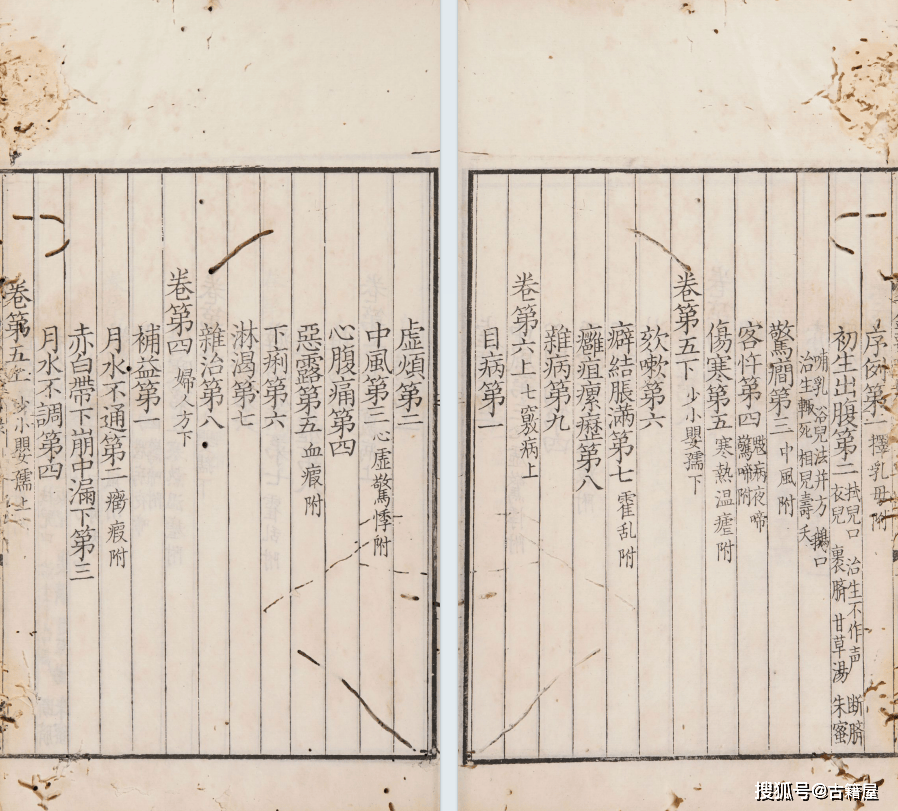 序例第一 擇乳母附
初生出腹第二 拭兒口 治生不作声 断臍
衣兒 裹臍 甘草湯 朱蜜
哺乳 浴兒法并方 鵝口
治生輙死 相兒壽夭
驚癇第三 中風附
客忤第四 魃病夜啼
驚啼附
傷寒第五 寒熱温瘧附
卷第五下 少小嬰孺下
欬嗽第六
癖結脹滿第七 霍乱附
癰疽瘰癧第八
雜病第九
卷第六上 七竅病上
目病第一
虚煩第二
中風第三 心虚驚悸附
心腹痛第四
惡露第五 血瘕附
下痢第六
淋渇第七
雜治第八
卷第四 婦人方下
補益第一
月水不通第二 癥瘕附
赤白帶下崩中漏下第三
月水不調第四
卷第五上 少小嬰孺上
搜狐号@古籍屋